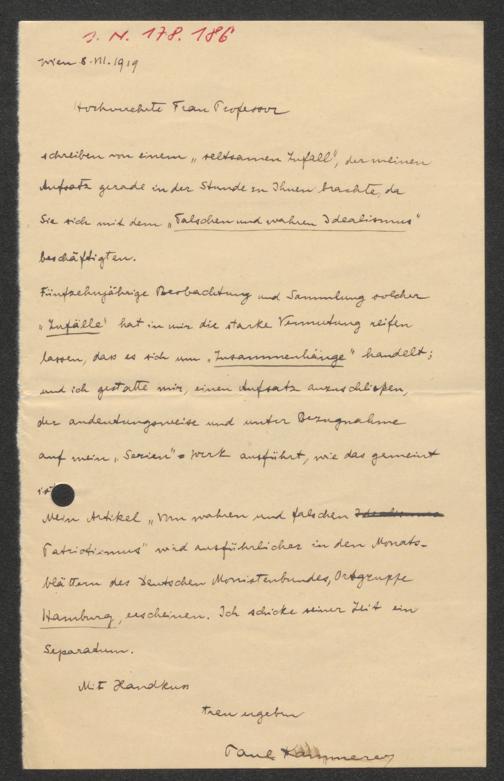 J. N. 178.186
Wien 8.VII.1919
Hochverehrte Frau Professor
schreiben von einem „seltsamen Zufall", der meinen
Aufsatz gerade in der Stunde zu Ihnen brachte, da
Sie sich mit dem „Falschen und wahren Idealismus"
beschäftigten.
Fünfzehnjährige Beobachtung und Sammlung solcher
„Zufälle" hat in mir die starke Vermutung reifen
lassen, dass es sich um „Zusammenhänge" handelt;
und ich gestatte mir, einen Aufsatz anzuschließen,
der andeutungsweise und unter Bezugnahme
auf mein „Serien"-Werk ausführt, wie das gemeint
ist.
Mein Artikel „Vom wahren und falschen Idealismus
Patriotismus" wird ausführlicher in den Monats-
blättern des Deutschen Monistenbundes, Ortsgruppe
Hamburg, erscheinen. Ich schicke seiner Zeit ein
Separatum.
Mit Handkuss
treu ergeben
Paul Kammerer